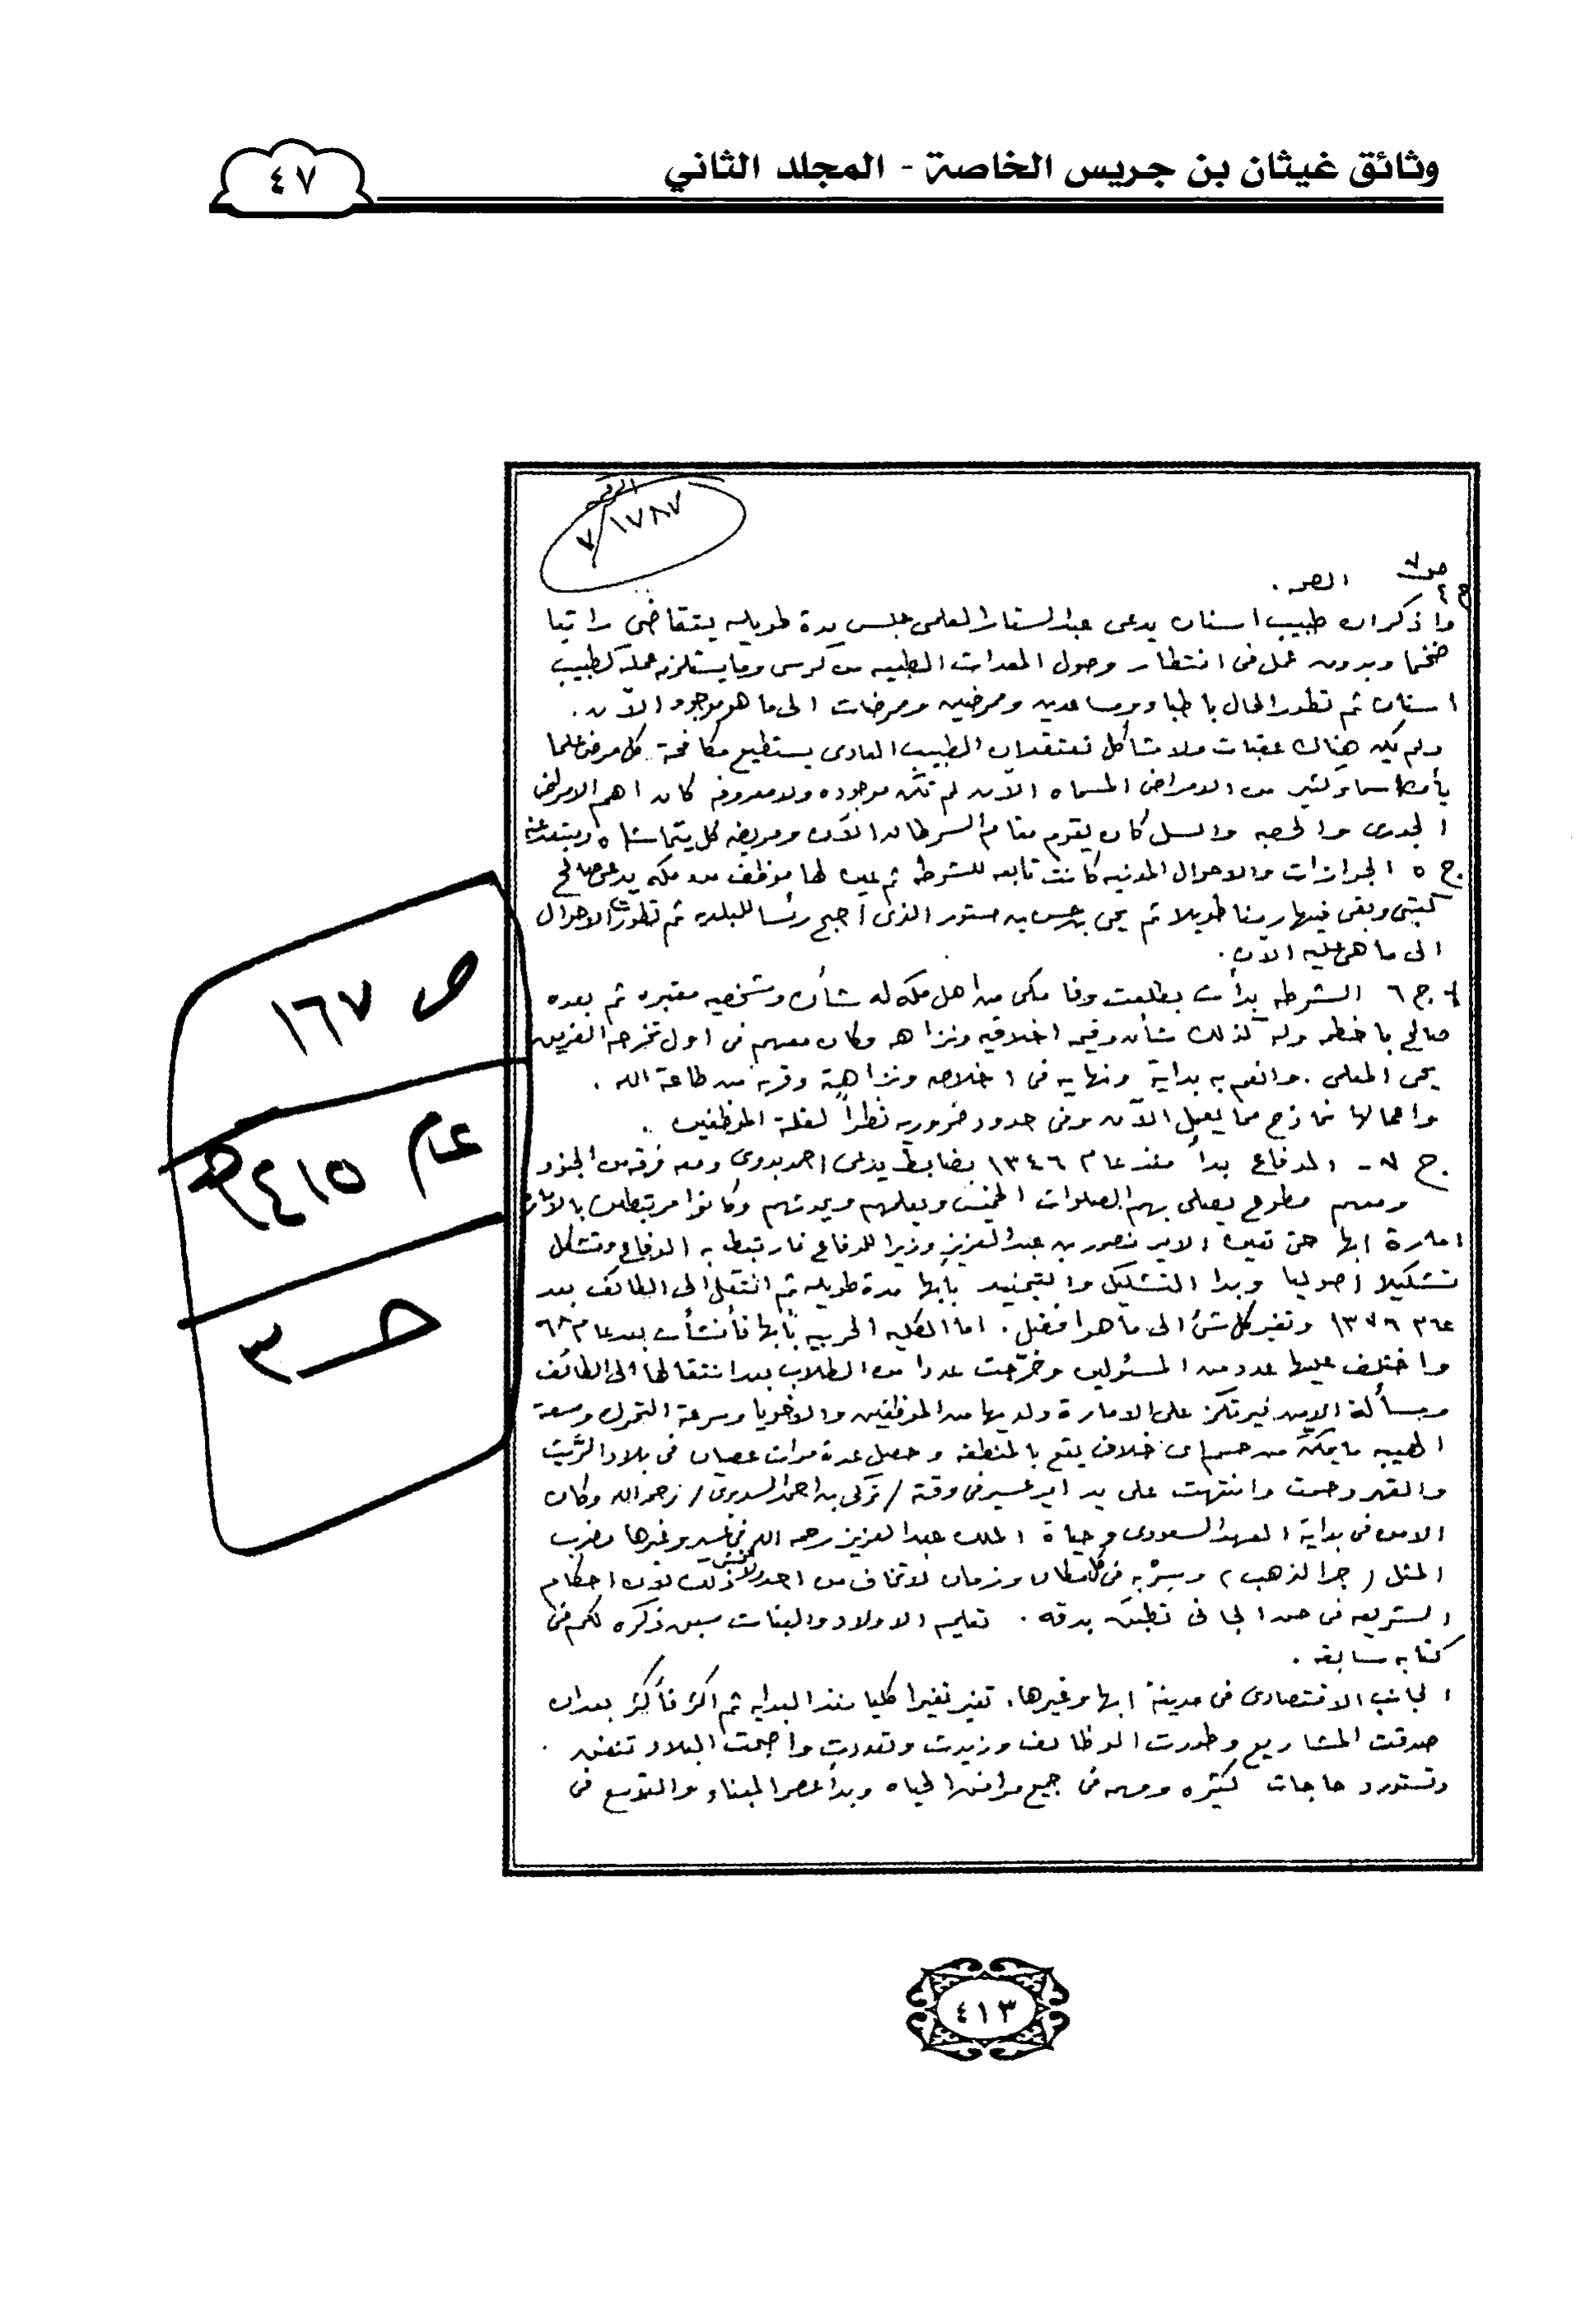 وثائق غيثان بن جريس الخاصة - المجلد الثاني
٤٧
الرقم
٧/١٧٨٧
ج ٤ الصحة .
واذكر ان طبيب اسنان يدعى عبدالستار العلمي جلس مدة طويلة يتقاضى راتبا
ضخما وبدون عمل في انتظار وصول المعدات الطبيه من كرسي وما يستلزمه عمله كطبيب
اسنان ثم تطور الحال باطباء ومساعدين وممرضين وممرضات الى ما هو موجود الآن .
ولم يكن هناك عقبات ولا مشاكل نعتقد ان الطبيب العادي يستطيع مكافحة كل مرض علما
بأن اسماء كثير من الامراض المسماه الآن لم تكن موجوده ولا معروفه كان اهم الامراض
الجدري والحصبه والسل كان يقوم مقام السرطان الآن ومريضه كل يتحاشاه ويبتعد عنه
ج ٥ الجوازات والاحوال المدنيه كانت تابعه للشرطه ثم عين لها موظف من مكه يدعى صالح
كتبي وبقي فيها زمنا طويلا ثم يحي بن حسن بن مستور الذي اصبح رئسا للبلديه ثم تطورت الاحوال
الى ما هي عليه الآن .
ج ٦ الشرطه بدأت بطلعت وفا مكي من اهل مكه له شأن وشخصيه معتبره ثم بعده
صالح باخطمه وله كذلك شأن وقيمه اخلاقيه ونزاهه وكان معهم في اول تخرجه الفريق
يحي المعلمي . وانعم به بداية ونهايه في اخلاصه ونزاهة وقربه من طاعة الله .
واعمالها نماذج مما يعمل الآن وفي حدود ضروريه نظراً لقلة الموظفين .
ج ٧ - الدفاع بدأ منذ عام ١٣٤٦ بضابط يدعى احمد بدوي ومعه فرقه من الجنود
ومعهم مطوع يصلي بهم الصلوات الخمس ويعلمهم ويحدثهم وكانوا مرتبطين بالاماره
امارة ابها حتى تعين الامير منصور بن عبدالعزيز وزيرا للدفاع فارتبط به الدفاع وتشكل
تشكيلا اصوليا وبدا التشكيل والتجنيد بأبها مدة طويله ثم انتقل الى الطائف بعد
عام ١٣٧٦ وتغير كل شئ الى ما هو افضل . اما الكليه الحربيه بأبها فأنشأت بعد عام ٦٨
واختلف عليها عدد من المسئولين وخرّجت عددا من الطلاب بعد انتقالها الى الطائف
ومسألة الامن فيرتكز على الامارة ولديها من الموظفين والاخويا وسرعة التحرك وسعة
الهيبه ما يمكن من حسم اي خلاف يقع بالمنطقه وحصل عدة مرات عصيان في بلاد الرّيث
والقهر وحسمت وانتهت على يد امير عسير في وقته / تركي بن احمد السديري / رحمه الله وكان
الامن في بداية العهد السعودي وحياة الملك عبدالعزيز رحمه الله في عسير وغيرها مضرب
المثل ( جر الذهب ) وسِرْ به في كل مكان وزمان لا تخاف من احد ذلك لأن احكام
الشريعه في ضد الجاني تطبق بدقه . تعليم الاولاد والبنات سبق ذكره لكم في
كتابه سابقه .
الجانب الاقتصادي في مدينة ابها وغيرها . تغير تغيرا كليا منذ البدايه ثم اكثر فأكثر بعد ان
صدقت المشاريع وطورت الوظائف وزيدت وتعددت واصبحت البلاد تنتعش .
وتستورد حاجات كثيره ومهمه في جميع مرافق الحياه وبدأ عصر البناء والتوسع في
ص ١٦٧
عام ١٤١٥هـ
حـ ٣
٤١٣